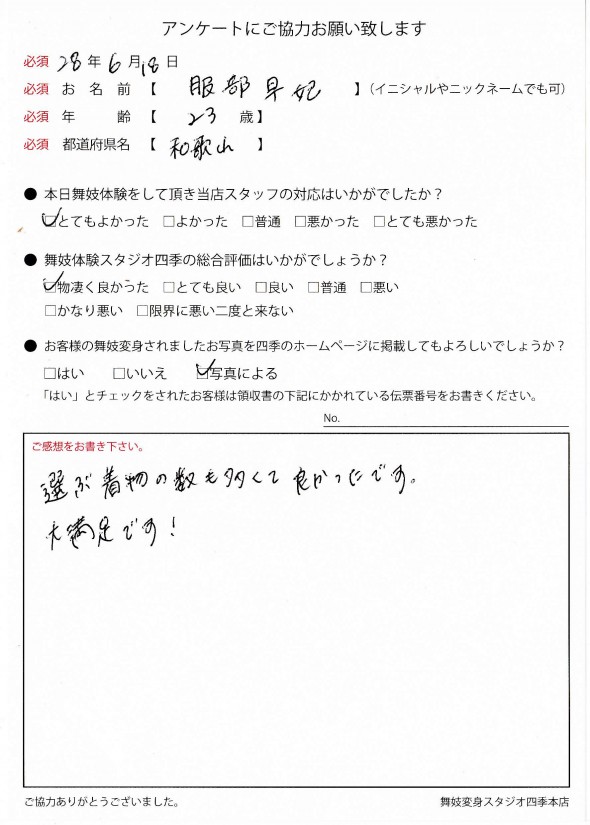 アンケートにご協力お願い致します
必須 28年6月18日
必須 お名前【 服部早妃 】(イニシャルやニックネームでも可)
必須 年齢【 23 歳】
必須 都道府県名【 和歌山 】
● 本日舞妓体験をして頂き当店スタッフの対応はいかがでしたか?
☑とてもよかった □よかった □普通 □悪かった □とても悪かった
● 舞妓体験スタジオ四季の総合評価はいかがでしょうか?
☑物凄く良かった □とても良い □良い □普通 □悪い
□かなり悪い □限界に悪い二度と来ない
● お客様の舞妓変身されましたお写真を四季のホームページに掲載してもよろしいでしょうか?
□はい □いいえ ☑写真による
「はい」とチェックをされたお客様は領収書の下記にかかれている伝票番号をお書きください。
No.
ご感想をお書き下さい。
選ぶ着物の数も多くて良かったです。
大満足です!
ご協力ありがとうございました。 舞妓変身スタジオ四季本店